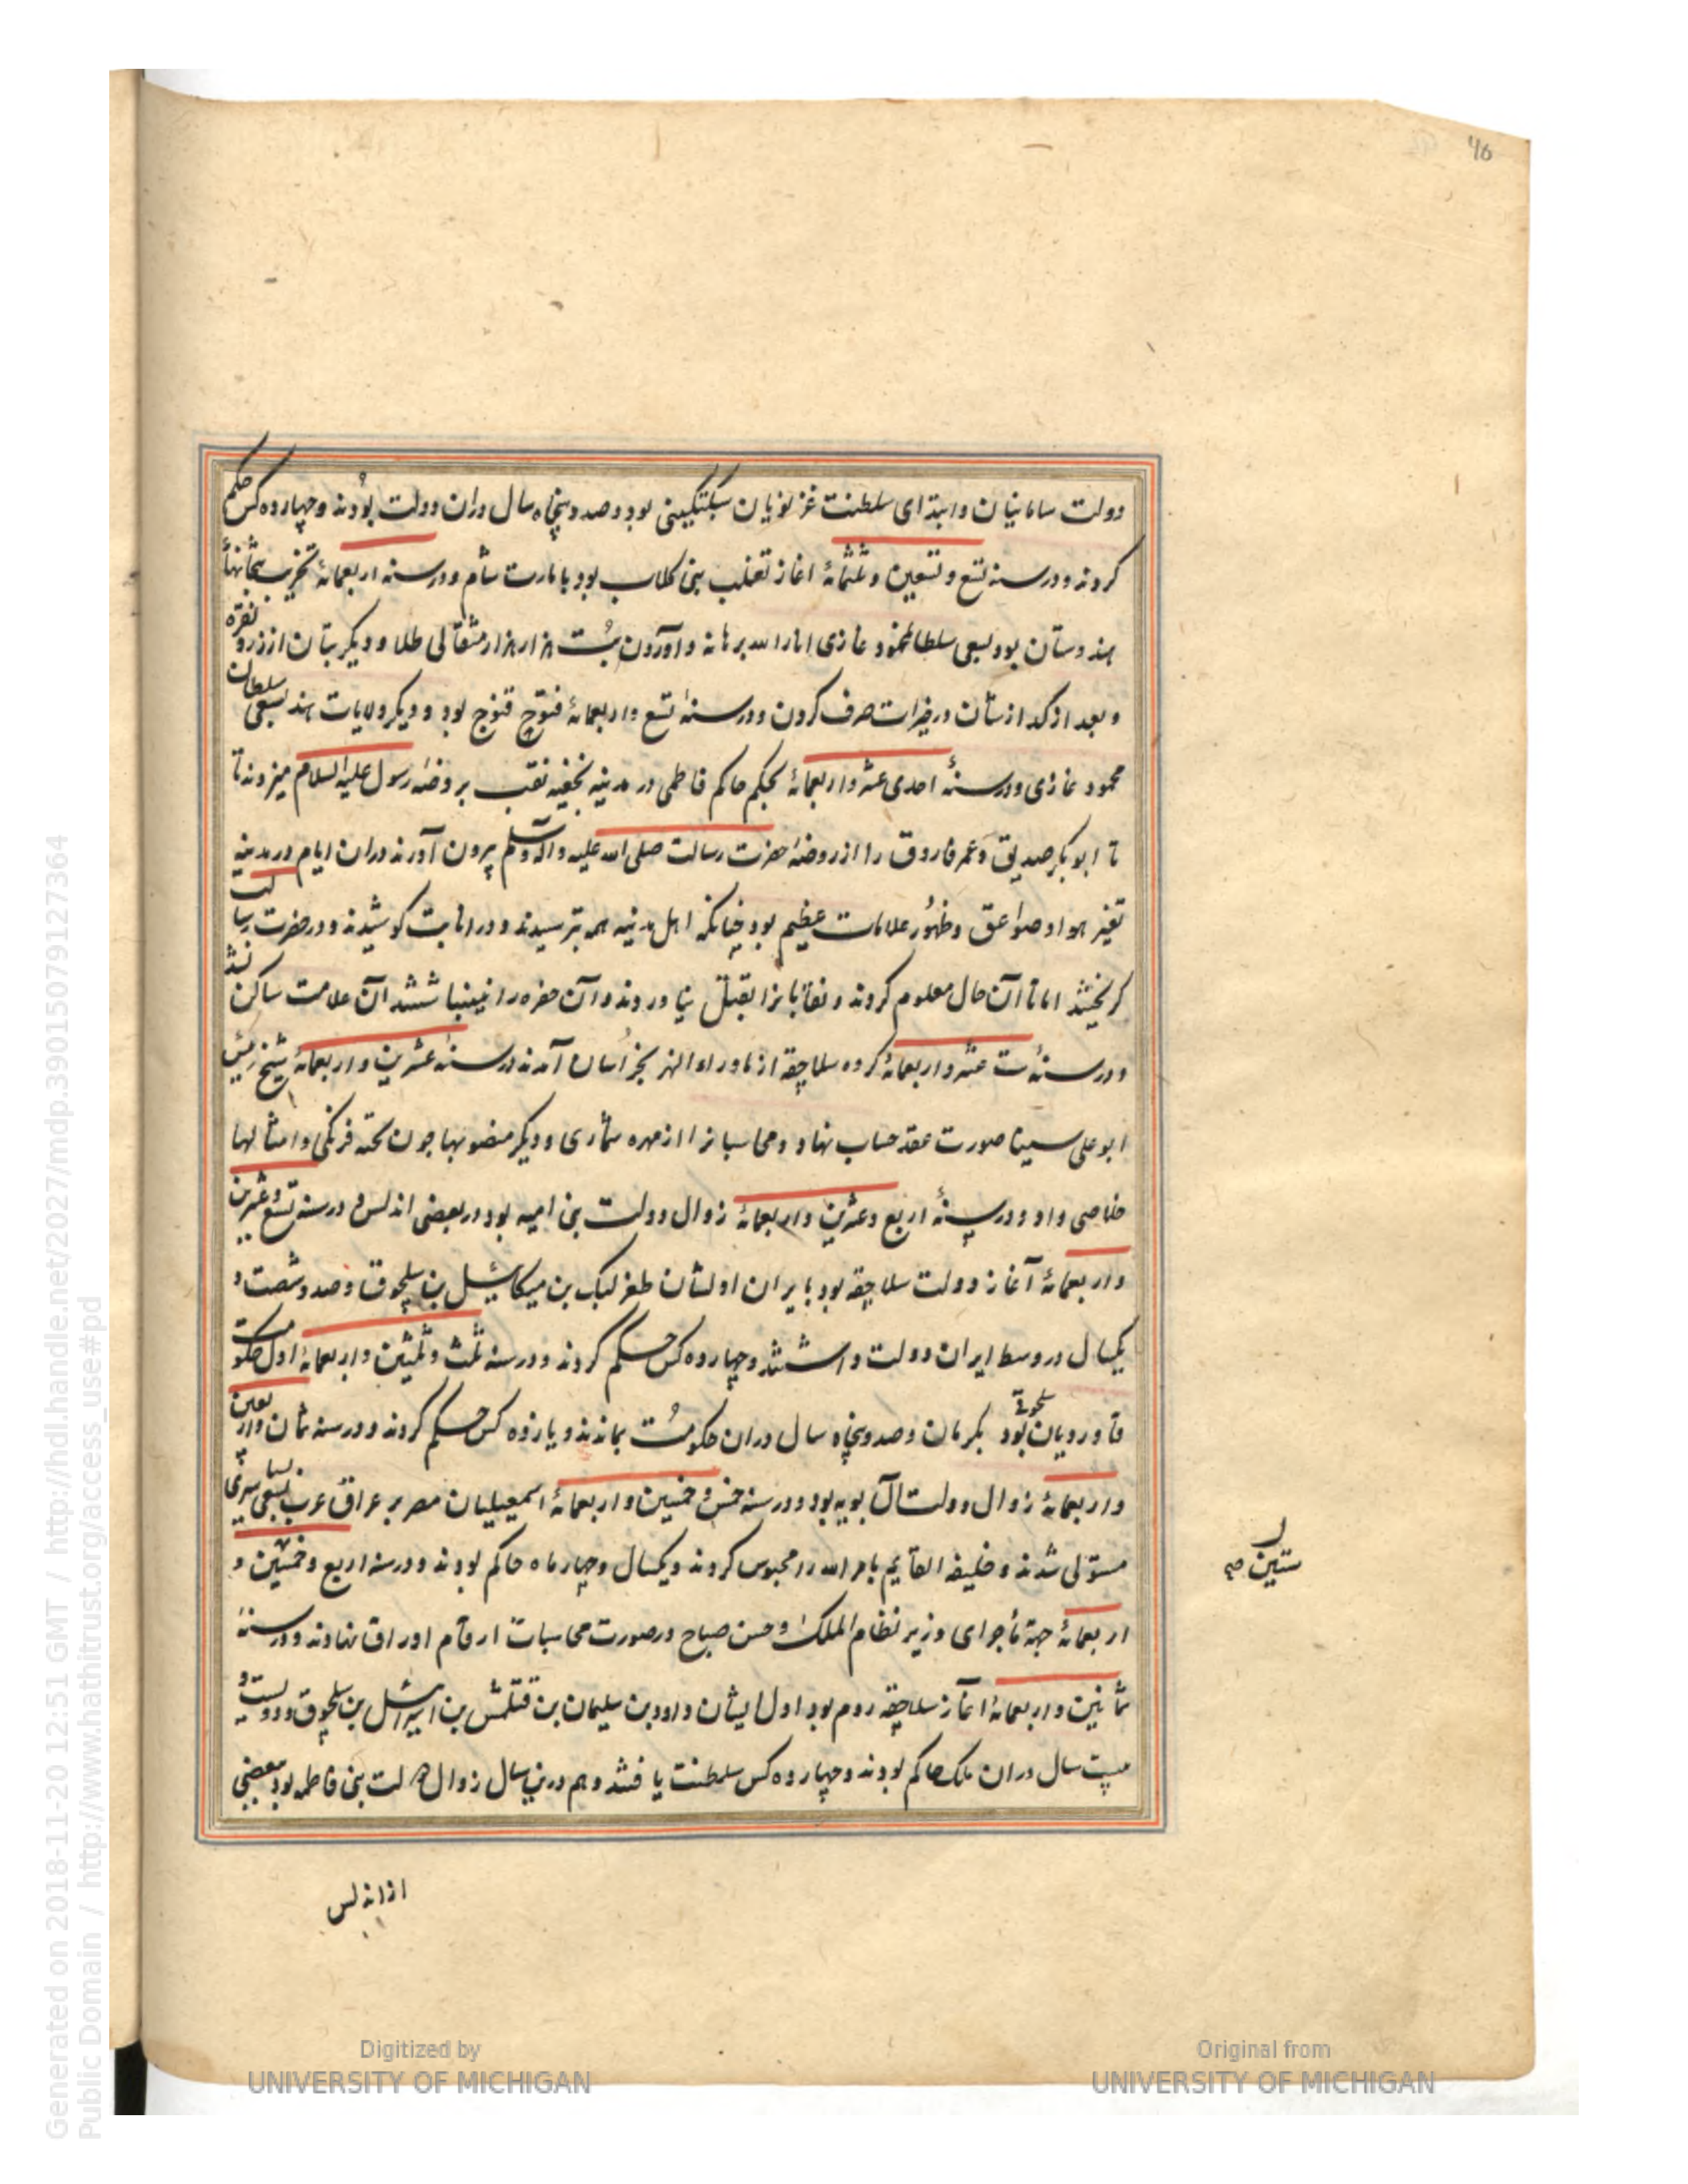 46
دولت سامانیان و ابتدای سلطنت غزنویان سبکتکینی بود و صد و پنجاه سال دران دولت بودند و چهارده کس حکم
کردند و در سنه تسع و تسعین و ثلثمائهٔ اغاز تغلب بنی کلاب بود بامارت شام و در سنه اربعمائهٔ تخریب بتخانهاء
هندوستان بود بسعی سلطان محمود غازی انار الله برهانه و آوردن بُت هزار هزار مثقالی طلا و دیکر بتان از زر و نقره
و بعد از کدازستان در خیرات صرف کردن و در سنهٔ تسع و اربعمائهٔ فتوح قنوج بود و دیکر ولایات هند بسعی سلطان
محمود غازی و در سنهٔ احدی عشر و اربعمائهٔ بحکم حاکم فاطمی در مدینه بخفیه نقب بر وضهٔ رسول علیه السلام میزدند تا
تا ابوبکر صدیق و عمر فاروق را از روضهٔ حضرت رسالت صلی الله علیه واله وسلم بیرون آورند دران ایام در مدینه
تغیر هوا و صواعق و ظهور علامات عظیم بود چنانکه اهل مدینه همه بترسیدند و در انابت کوشیدند و در حضرت رسالت
کریختند اما تا آن حال معلوم کردند و نقابانرا بقتل نیاوردند و آن حفره را نینباشتند آن علامت ساکن نشد
و در سنهٔ ست عشر و اربعمائهٔ کروه سلاجقه از ماوراءالنهر بخراسان آمدند در سنهٔ عشرین و اربعمائهٔ شیخ رئیس
ابو علی سینا صورت عقد حساب نهاد و محاسبانرا از مهره شماری و دیکر منصوبها چون تخته فرنکی و امثالها
خلاصی داد و در سنهٔ اربع و عشرین و اربعمائهٔ زوال دولت بنی امیه بود در بعضی اندلس در سنه تسع و عشرین
و اربعمائهٔ آغاز دولت سلاجقه بود بایران اولشان طغرلبک بن میکائیل بن سلجوق و صد و شصت و
یکسال در وسط ایران دولت داشتند و چهارده کس حکم کردند و در سنه ثلث و ثلثین و اربعمائهٔ اول حکومت
قاوردیان سلجوقی بود بکرمان و صد و پنجاه سال دران حکومت بماندند و یازده کس حکم کردند و در سنه ثمان و اربعین
و اربعمائهٔ زوال دولت آل بویه بود و در سنه خمس و خمسین و اربعمائهٔ اسمعیلیان مصر بر عراق عرب بسعی بساسیری
مستولی شدند و خلیفه القایم بامر الله را محبوس کردند و یکسال و چهار ماه حاکم بودند و در سنه اربع و خمسین و
ستین صح
اربعمائهٔ جهة ماجرای وزیر نظام الملک و حسن صباح در صورت محاسبات ارقام اوراق نهادند و در سنهٔ
ثمانین و اربعمائهٔ اغاز سلاجقه روم بود اول ایشان داود بن سلیمان بن قتلمش بن اسرائیل بن سلجوق و دویست و
بیست سال دران ملک حاکم بودند و چهارده کس سلطنت یافتند و هم درین سال زوال دولت بنی فاطمه بود ببعضی
از اندلس
Generated on 2018-11-20 12:51 GMT / http://hdl.handle.net/2027/mdp.39015079127364
Public Domain / http://www.hathitrust.org/access_use#pd
Digitized by
UNIVERSITY OF MICHIGAN
Original from
UNIVERSITY OF MICHIGAN